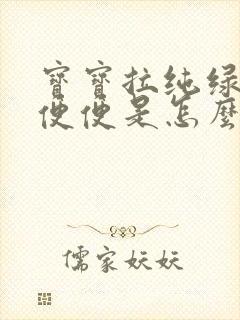 寶寶拉纯绿
便便是怎麼
儒家妖妖